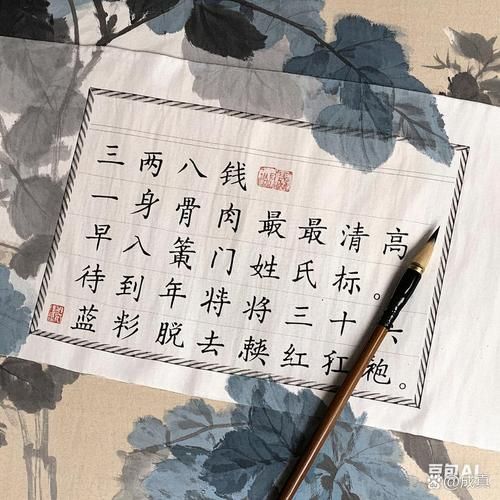 三两八钱
一身骨肉最最清高
早入簧门姓氏标。
待到年将将三十六
蓝彩脱去红红袍。
豆包AI
@成真